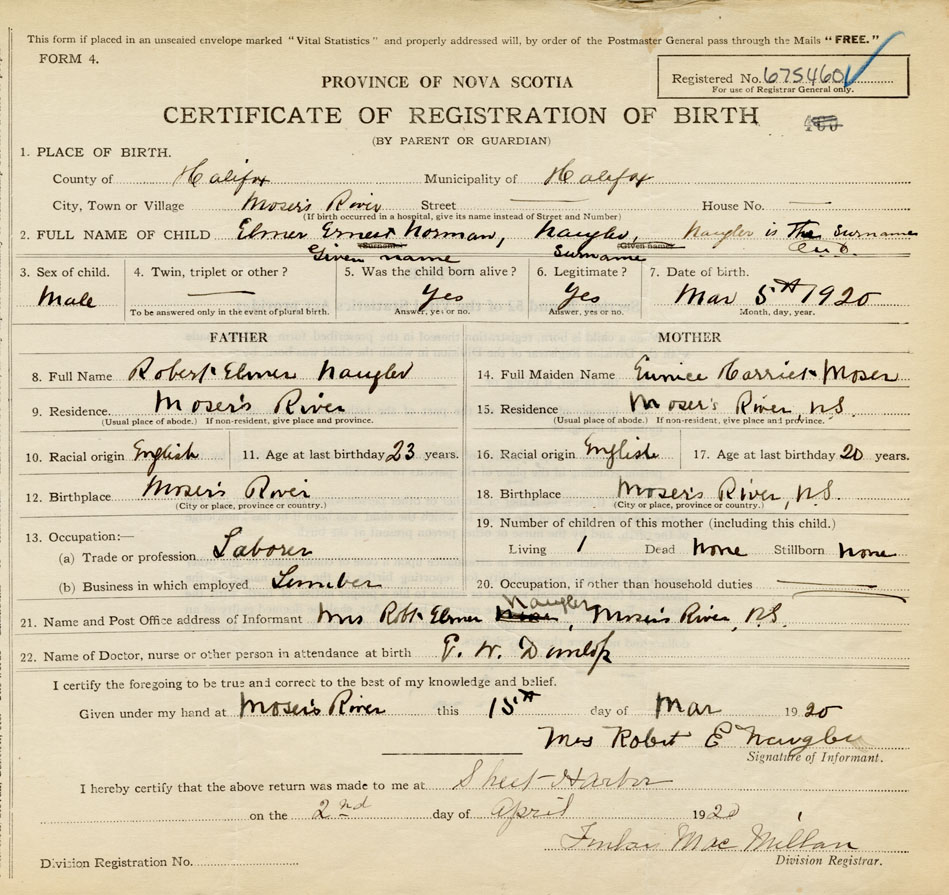 This form if placed in an unsealed envelope marked "Vital Statistics" and properly addressed will, by order of the Postmaster General pass through the Mails "FREE."
FORM 4.
Registered No. 675460
For use of Registrar General only.
PROVINCE OF NOVA SCOTIA
CERTIFICATE OF REGISTRATION OF BIRTH
(BY PARENT OR GUARDIAN)
1. PLACE OF BIRTH.
County of Halifax Municipality of Halifax
City, Town or Village Moser's River Street — House No. —
(If birth occurred in a hospital, give its name instead of Street and Number)
2. FULL NAME OF CHILD Elmer Ernest Norman, Naugler, Naugler is The Surname
Surname Given name
Given name Surname
3. Sex of child. 4. Twin, triplet or other? 5. Was the child born alive? 6. Legitimate? 7. Date of birth.
Male — Yes Yes Mar 5th 1920
To be answered only in the event of plural birth. Answer, yes or no. Answer, yes or no. Month, day, year.
FATHER MOTHER
8. Full Name Robert Elmer Naugler 14. Full Maiden Name Eunice Harriet Moser
9. Residence. Moser's River 15. Residence Moser's River, N.S.
(Usual place of abode.) If non-resident, give place and province. (Usual place of abode.) If non-resident, give place and province.
10. Racial origin English 11. Age at last birthday 23 years. 16. Racial origin English 17. Age at last birthday 20 years.
12. Birthplace Moser's River 18. Birthplace Moser's River, N.S.
(City or place, province or country.) (City or place, province or country.)
13. Occupation:— 19. Number of children of this mother (including this child.)
(a) Trade or profession Laborer Living 1 Dead None Stillborn None
(b) Business in which employed Lumber 20. Occupation, if other than household duties —
21. Name and Post Office address of Informant Mrs Robt Elmer Naugler, Moser's River, N.S.
22. Name of Doctor, nurse or other person in attendance at birth E. W. Dunlop
I certify the foregoing to be true and correct to the best of my knowledge and belief.
Given under my hand at Moser's River this 15th day of Mar 1920
Mrs Robert E Naugler
Signature of Informant.
I hereby certify that the above return was made to me at Sheet Harbor
on the 2nd day of April 1920
Finlay MacMillan
Division Registration No. Division Registrar.